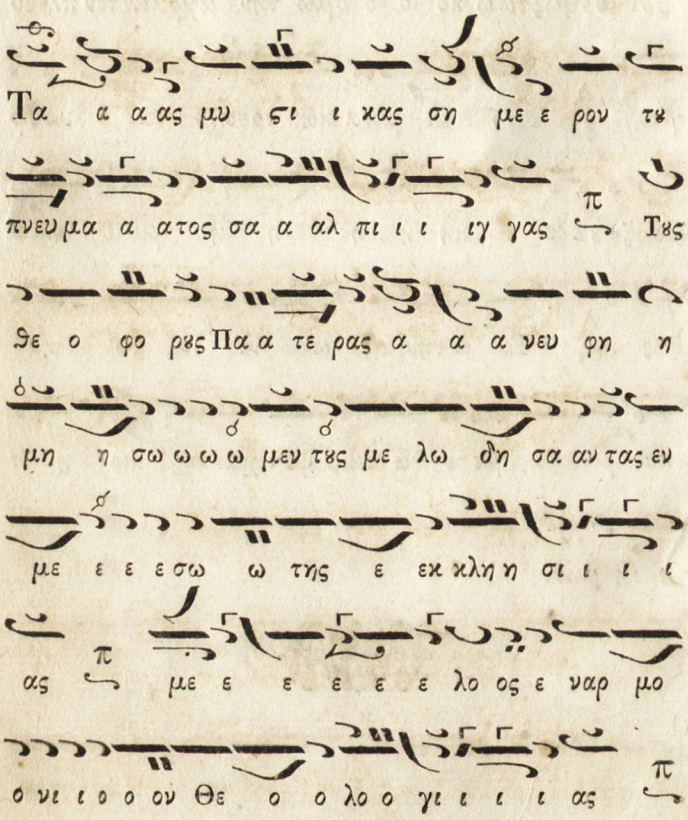 Τα α α ας μυ ϛι ι κας ση με ε ρον τȣ
πνευ μα α α τος σα α αλ πι ι ι ιγ γας π Τȣς
ϑε ο φο ρȣς Πα α τε ρας α α α νευ φη η
μη η σω ω ω ω μεν τȣς με λω δη σα αν τας εν
με ε ε ε σω ω της ε εκ κλη η σι ι ι ι
ας π με ε ε ε ε ε λο ος ε ναρ μο
ο νι ι ο ο ον Θε ο ο λο ο γι ι ι ι ας π